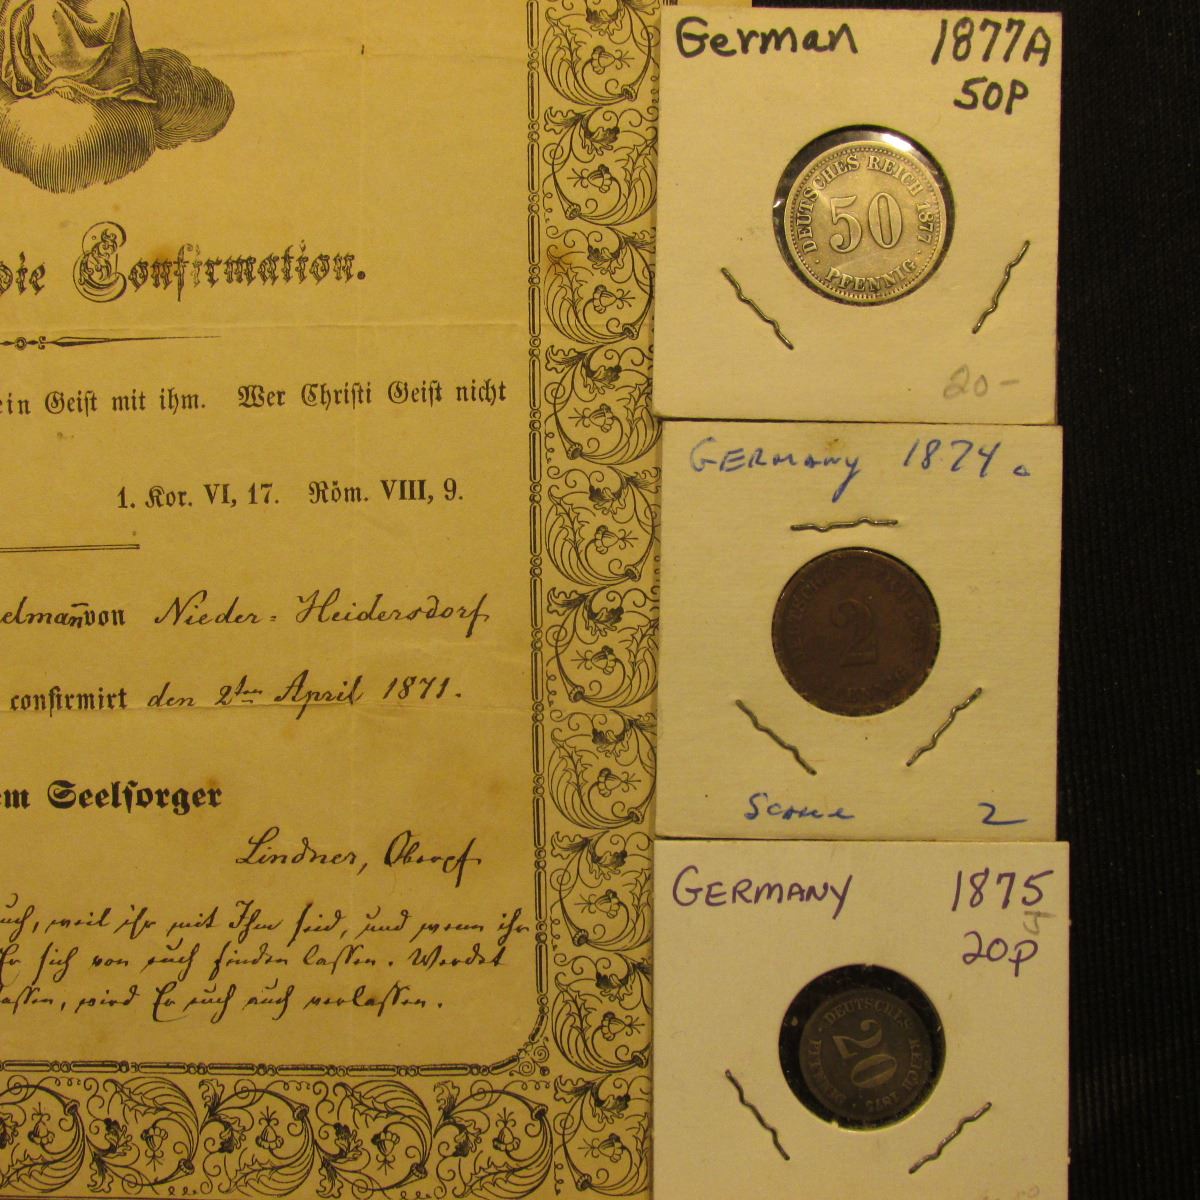 die Confirmation.
ein Geist mit ihm. Wer Christi Geist nicht
1. Kor. VI, 17. Röm. VIII, 9.
von Nieder-Heidersdorf
confirmirt den 2ten April 1871.
Seelsorger
Lindner, Oberpf
euch, weil ihr mit Ihm seid, und wenn ihr
Er sich von euch finden lassen. Werdet
lassen, wird Er euch auch verlassen.
German 1877A
50P
DEUTSCHES REICH 1877
50
PFENNIG
20-
GERMANY 1874 c
2
PFENNIG
Scarce 2
GERMANY 1875
20p
DEUTSCHES REICH 1875
20
PFENNIG